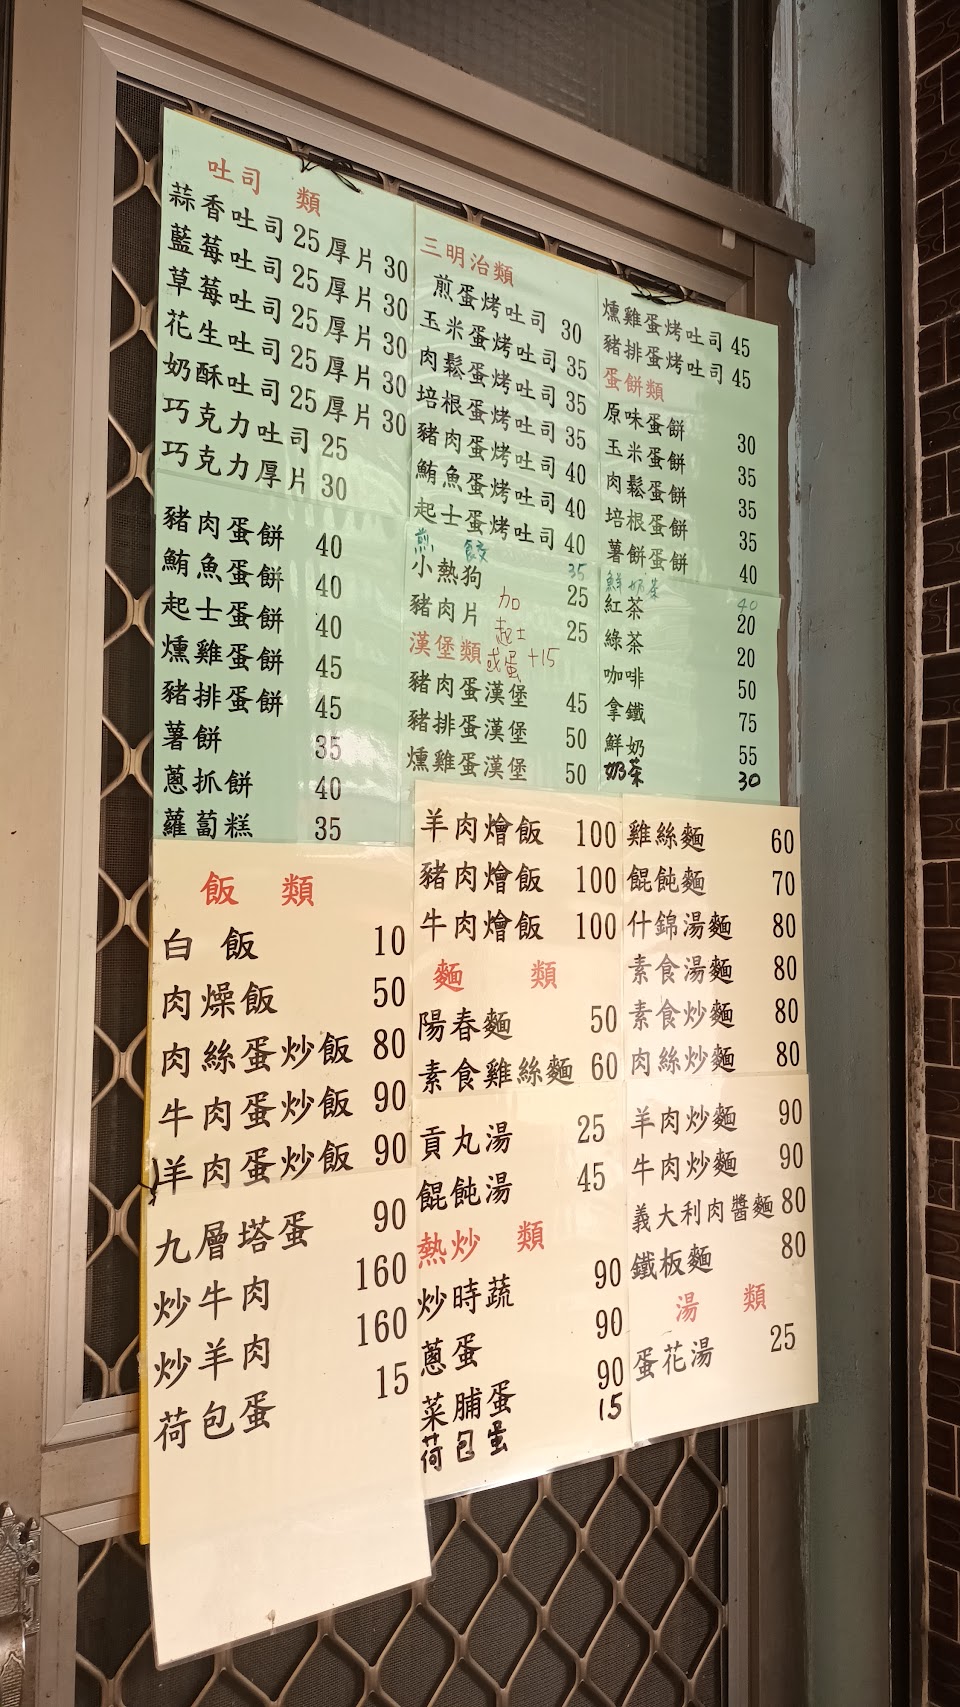 吐司 類
蒜香吐司 25 厚片 30
藍莓吐司 25 厚片 30
草莓吐司 25 厚片 30
花生吐司 25 厚片 30
奶酥吐司 25 厚片 30
巧克力吐司 25
巧克力厚片 30
豬肉蛋餅 40
鮪魚蛋餅 40
起士蛋餅 40
燻雞蛋餅 45
豬排蛋餅 45
薯餅 35
蔥抓餅 40
蘿蔔糕 35
三明治類
煎蛋烤吐司 30
玉米蛋烤吐司 35
肉鬆蛋烤吐司 35
培根蛋烤吐司 35
豬肉蛋烤吐司 40
鮪魚蛋烤吐司 40
起士蛋烤吐司 40
煎餃 35
小熱狗 25
豬肉片 25
加
起士
或蛋 +15
漢堡類
豬肉蛋漢堡 45
豬排蛋漢堡 50
燻雞蛋漢堡 50
燻雞蛋烤吐司 45
豬排蛋烤吐司 45
蛋餅類
原味蛋餅 30
玉米蛋餅 35
肉鬆蛋餅 35
培根蛋餅 35
薯餅蛋餅 40
鮮奶茶 40
紅茶 20
綠茶 20
咖啡 50
拿鐵 75
鮮奶 55
奶茶 30
飯 類
白 飯 10
肉燥飯 50
肉絲蛋炒飯 80
牛肉蛋炒飯 90
羊肉蛋炒飯 90
九層塔蛋 90
炒牛肉 160
炒羊肉 160
荷包蛋 15
羊肉燴飯 100
豬肉燴飯 100
牛肉燴飯 100
麵 類
陽春麵 50
素食雞絲麵 60
貢丸湯 25
餛飩湯 45
熱炒 類
炒時蔬 90
蔥蛋 90
菜脯蛋 90
荷包蛋 15
雞絲麵 60
餛飩麵 70
什錦湯麵 80
素食湯麵 80
素食炒麵 80
肉絲炒麵 80
羊肉炒麵 90
牛肉炒麵 90
義大利肉醬麵 80
鐵板麵 80
湯 類
蛋花湯 25